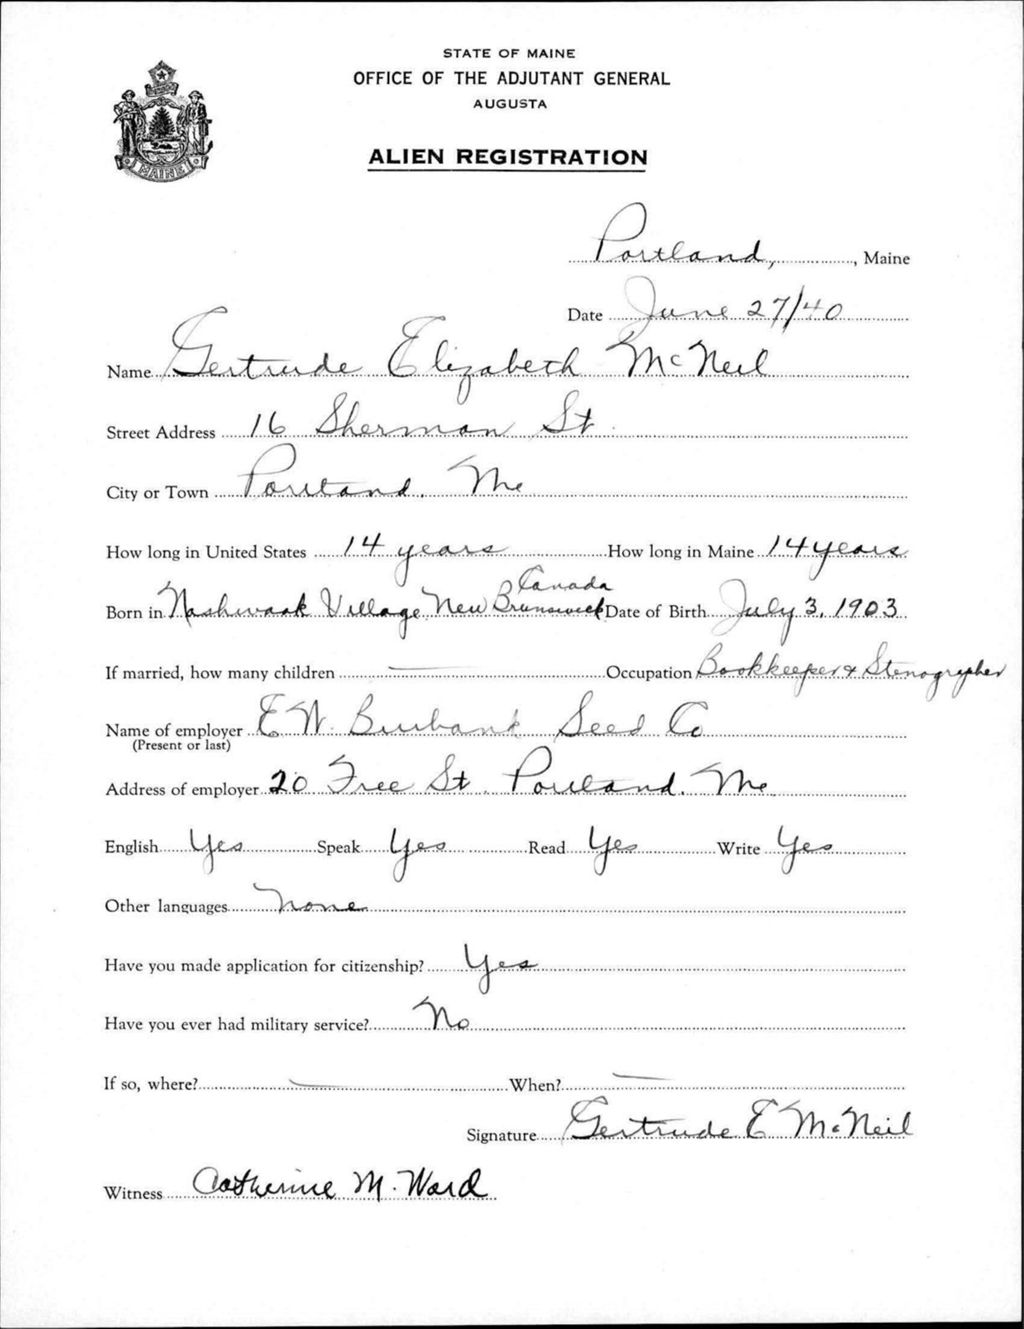 STATE OF MAINE
OFFICE OF THE ADJUTANT GENERAL
AUGUSTA
ALIEN REGISTRATION
MAINE
Portland, , Maine
Date June 27/40
Name Gertrude Elizabeth McNeil
Street Address 16 Sherman St
City or Town Portland. Me
How long in United States 14 years How long in Maine 14 years
Canada
Born in Nashwaak Village New Brunswick Date of Birth July 3, 1903
If married, how many children — Occupation Bookkeeper & Stenographer
Name of employer E W. Burbank Seed Co
(Present or last)
Address of employer 20 Free St. Portland. Me
English Yes Speak Yes Read Yes Write Yes
Other languages none
Have you made application for citizenship? Yes
Have you ever had military service? No
If so, where? — When? —
Signature Gertrude E McNeil
Witness Catherine M. Ward